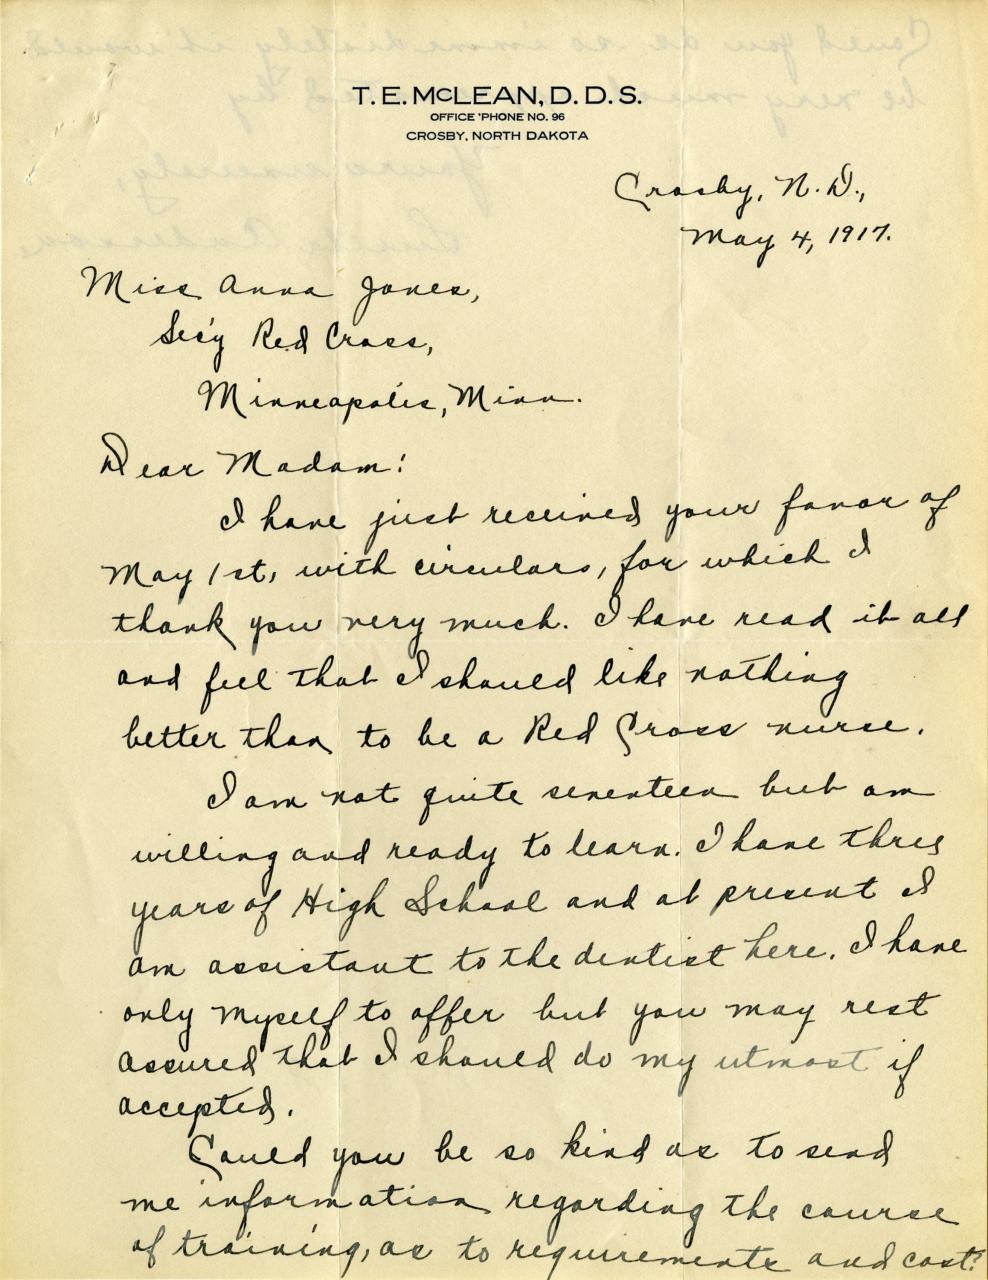 T. E. McLEAN, D. D. S.
OFFICE 'PHONE NO. 96
CROSBY, NORTH DAKOTA
Crosby, N. D.,
May 4, 1917.
Miss Anna Jones,
Sec'y Red Cross,
Minneapolis, Minn.
Dear Madam:
I have just received your favor of
May 1st, with circulars, for which I
thank you very much. I have read it all
and feel that I should like nothing
better than to be a Red Cross nurse.
I am not quite seventeen but am
willing and ready to learn. I have three
years of High School and at present I
am assistant to the dentist here. I have
only myself to offer but you may rest
assured that I should do my utmost if
accepted.
Could you be so kind as to send
me information regarding the course
of training, as to requirements and cost?